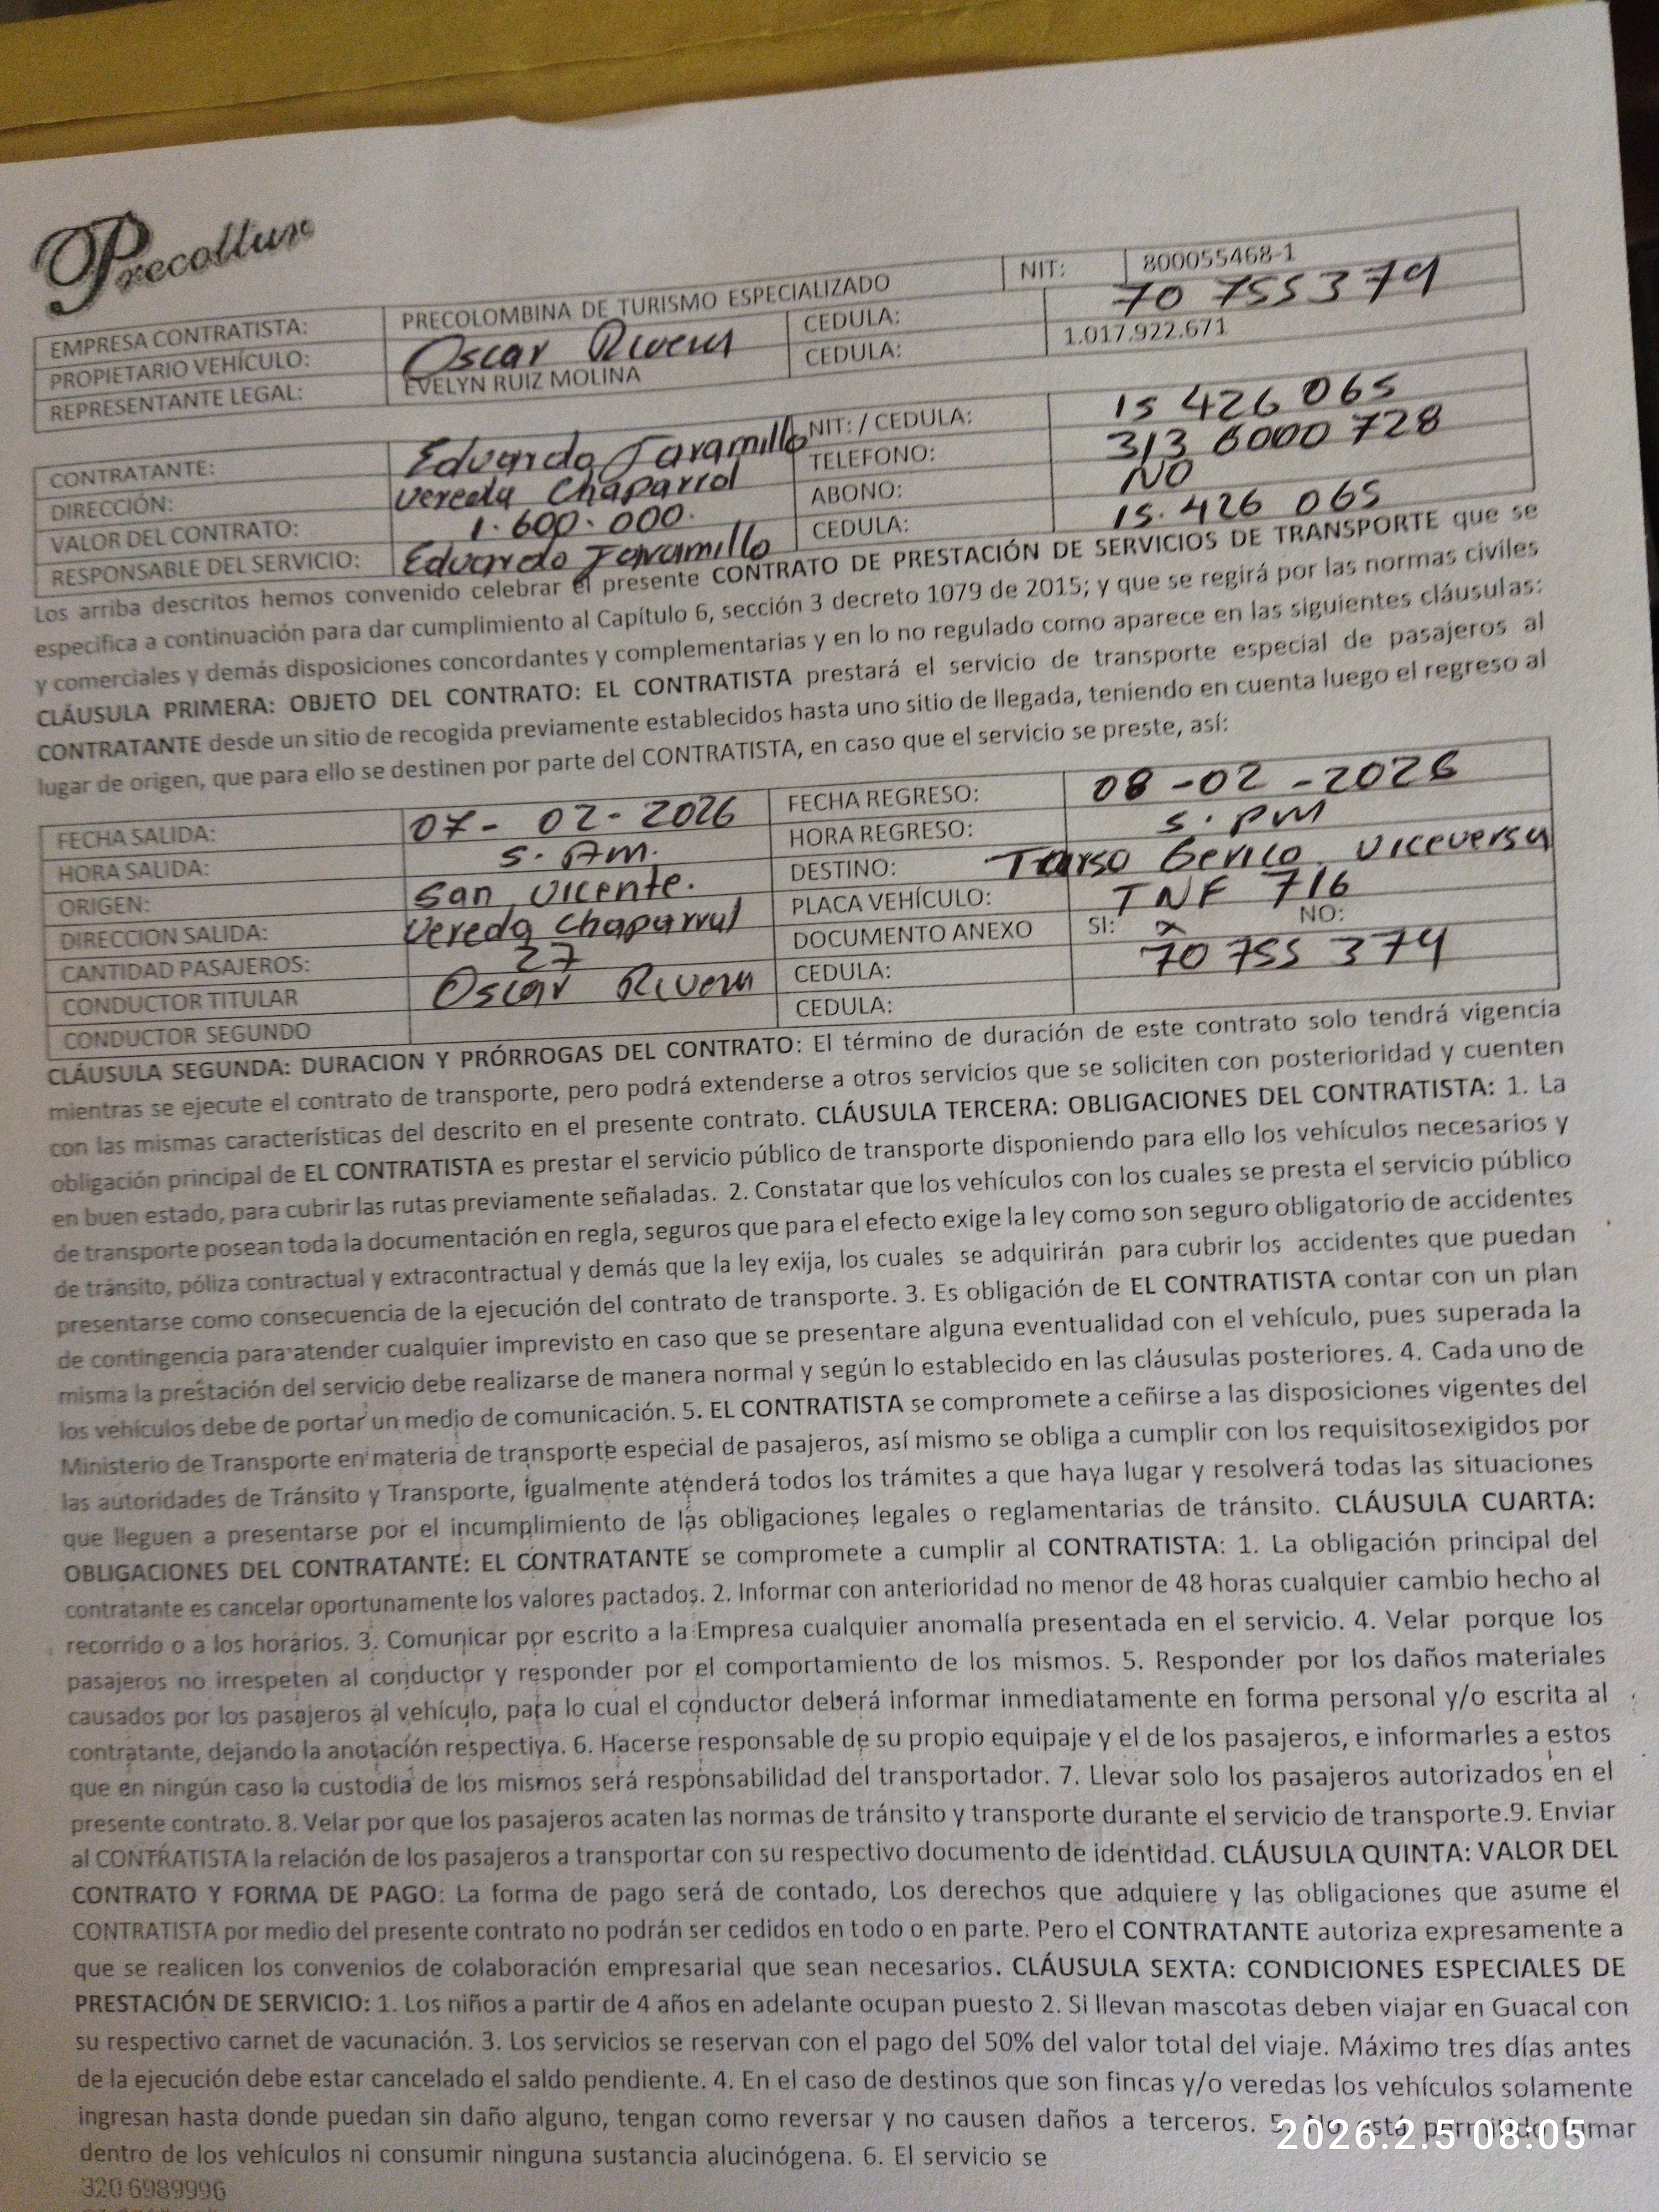 Precoltur
EMPRESA CONTRATISTA: PRECOLOMBINA DE TURISMO ESPECIALIZADO NIT: 800055468-1
PROPIETARIO VEHÍCULO: Oscar Rivera CEDULA: 70 755 379
REPRESENTANTE LEGAL: EVELYN RUIZ MOLINA CEDULA: 1.017.922.671
CONTRATANTE: Eduardo Jaramillo NIT: / CEDULA: 15 426 065
DIRECCIÓN: Vereda Chaparral TELEFONO: 313 6000 728
VALOR DEL CONTRATO: 1.600.000. ABONO: NO
RESPONSABLE DEL SERVICIO: Eduardo Jaramillo CEDULA: 15.426 065
Los arriba descritos hemos convenido celebrar el presente CONTRATO DE PRESTACIÓN DE SERVICIOS DE TRANSPORTE que se
especifica a continuación para dar cumplimiento al Capítulo 6, sección 3 decreto 1079 de 2015; y que se regirá por las normas civiles
y comerciales y demás disposiciones concordantes y complementarias y en lo no regulado como aparece en las siguientes cláusulas:
CLÁUSULA PRIMERA: OBJETO DEL CONTRATO: EL CONTRATISTA prestará el servicio de transporte especial de pasajeros al
CONTRATANTE desde un sitio de recogida previamente establecidos hasta uno sitio de llegada, teniendo en cuenta luego el regreso al
lugar de origen, que para ello se destinen por parte del CONTRATISTA, en caso que el servicio se preste, así:
FECHA SALIDA: 07- 02- 2026 FECHA REGRESO: 08 -02 -2026
HORA SALIDA: 5. AM. HORA REGRESO: 5. PM
ORIGEN: San Vicente. DESTINO: Tarso Gerico Viceversa
DIRECCION SALIDA: Vereda Chaparral PLACA VEHÍCULO: TNF 716
CANTIDAD PASAJEROS: 27 DOCUMENTO ANEXO SI: x NO:
CONDUCTOR TITULAR Oscar Rivera CEDULA: 70 755 379
CONDUCTOR SEGUNDO CEDULA:
CLÁUSULA SEGUNDA: DURACION Y PRÓRROGAS DEL CONTRATO: El término de duración de este contrato solo tendrá vigencia
mientras se ejecute el contrato de transporte, pero podrá extenderse a otros servicios que se soliciten con posterioridad y cuenten
con las mismas características del descrito en el presente contrato. CLÁUSULA TERCERA: OBLIGACIONES DEL CONTRATISTA: 1. La
obligación principal de EL CONTRATISTA es prestar el servicio público de transporte disponiendo para ello los vehículos necesarios y
en buen estado, para cubrir las rutas previamente señaladas. 2. Constatar que los vehículos con los cuales se presta el servicio público
de transporte posean toda la documentación en regla, seguros que para el efecto exige la ley como son seguro obligatorio de accidentes
de tránsito, póliza contractual y extracontractual y demás que la ley exija, los cuales se adquirirán para cubrir los accidentes que puedan
presentarse como consecuencia de la ejecución del contrato de transporte. 3. Es obligación de EL CONTRATISTA contar con un plan
de contingencia para atender cualquier imprevisto en caso que se presentare alguna eventualidad con el vehículo, pues superada la
misma la prestación del servicio debe realizarse de manera normal y según lo establecido en las cláusulas posteriores. 4. Cada uno de
los vehículos debe de portar un medio de comunicación. 5. EL CONTRATISTA se compromete a ceñirse a las disposiciones vigentes del
Ministerio de Transporte en materia de transporte especial de pasajeros, así mismo se obliga a cumplir con los requisitosexigidos por
las autoridades de Tránsito y Transporte, igualmente atenderá todos los trámites a que haya lugar y resolverá todas las situaciones
que lleguen a presentarse por el incumplimiento de las obligaciones legales o reglamentarias de tránsito. CLÁUSULA CUARTA:
OBLIGACIONES DEL CONTRATANTE: EL CONTRATANTE se compromete a cumplir al CONTRATISTA: 1. La obligación principal del
contratante es cancelar oportunamente los valores pactados. 2. Informar con anterioridad no menor de 48 horas cualquier cambio hecho al
recorrido o a los horarios. 3. Comunicar por escrito a la Empresa cualquier anomalía presentada en el servicio. 4. Velar porque los
pasajeros no irrespeten al conductor y responder por el comportamiento de los mismos. 5. Responder por los daños materiales
causados por los pasajeros al vehículo, para lo cual el conductor deberá informar inmediatamente en forma personal y/o escrita al
contratante, dejando la anotación respectiva. 6. Hacerse responsable de su propio equipaje y el de los pasajeros, e informarles a estos
que en ningún caso la custodia de los mismos será responsabilidad del transportador. 7. Llevar solo los pasajeros autorizados en el
presente contrato. 8. Velar por que los pasajeros acaten las normas de tránsito y transporte durante el servicio de transporte.9. Enviar
al CONTRATISTA la relación de los pasajeros a transportar con su respectivo documento de identidad. CLÁUSULA QUINTA: VALOR DEL
CONTRATO Y FORMA DE PAGO: La forma de pago será de contado, Los derechos que adquiere y las obligaciones que asume el
CONTRATISTA por medio del presente contrato no podrán ser cedidos en todo o en parte. Pero el CONTRATANTE autoriza expresamente a
que se realicen los convenios de colaboración empresarial que sean necesarios. CLÁUSULA SEXTA: CONDICIONES ESPECIALES DE
PRESTACIÓN DE SERVICIO: 1. Los niños a partir de 4 años en adelante ocupan puesto 2. Si llevan mascotas deben viajar en Guacal con
su respectivo carnet de vacunación. 3. Los servicios se reservan con el pago del 50% del valor total del viaje. Máximo tres días antes
de la ejecución debe estar cancelado el saldo pendiente. 4. En el caso de destinos que son fincas y/o veredas los vehículos solamente
ingresan hasta donde puedan sin daño alguno, tengan como reversar y no causen daños a terceros. 5. No está permitido fumar
dentro de los vehículos ni consumir ninguna sustancia alucinógena. 6. El servicio se
320 6989996
2026.2.5 08:05